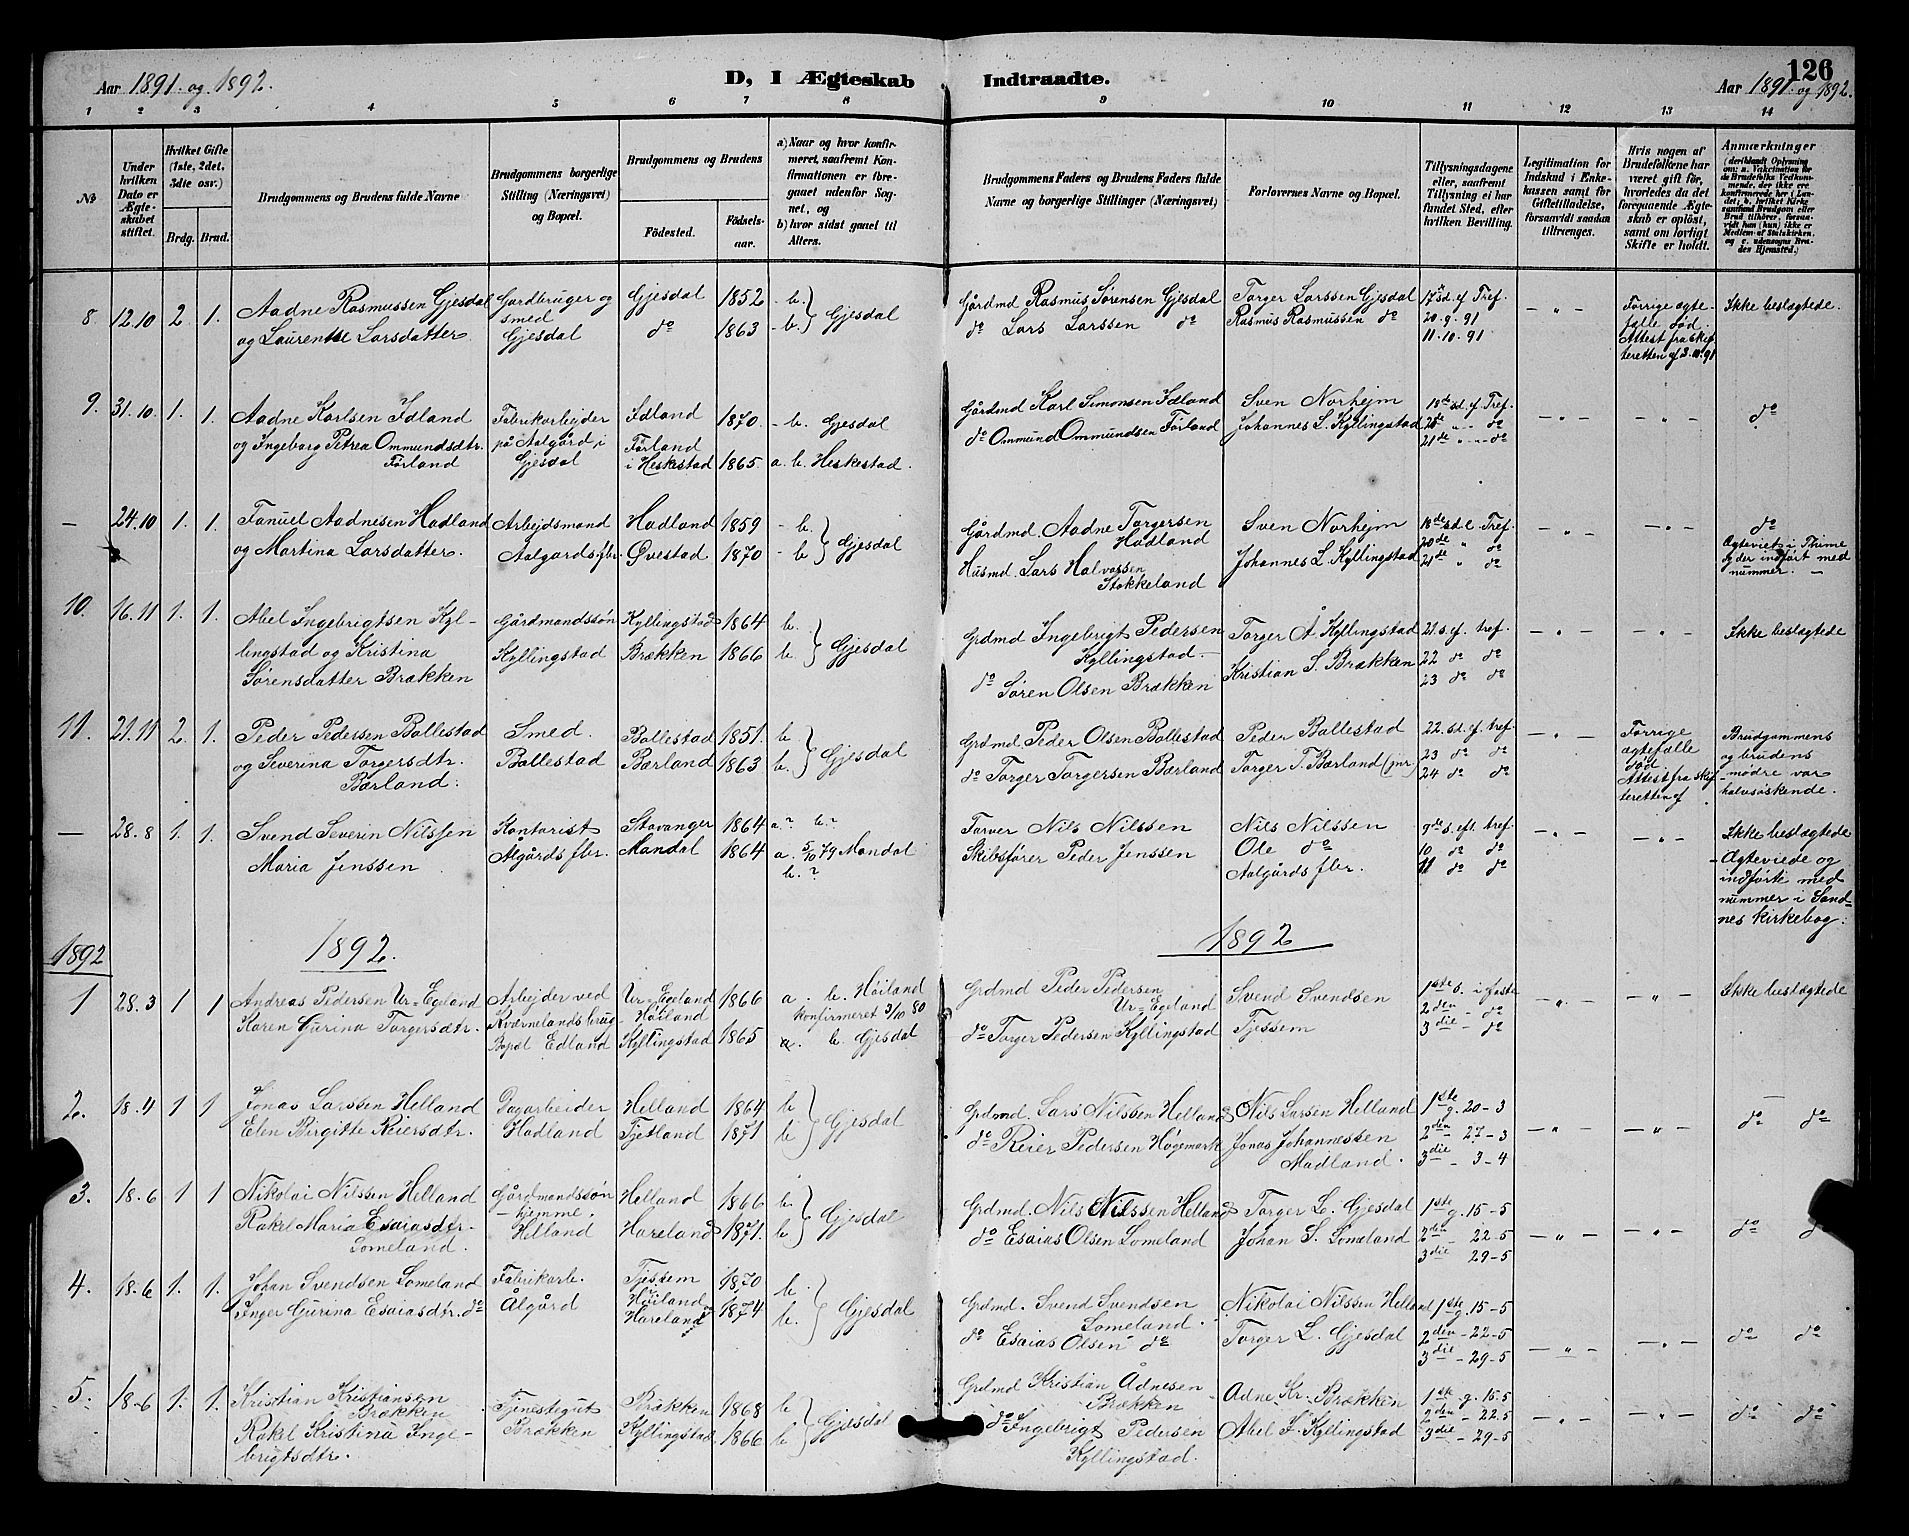 126
Aar 1891. og 1892.
D, I Ægteskab Indtraadte.
Aar 1891. og 1892.
1 2 3 4 5 6 7 8 9 10 11 12 13 14
№
Under hvilken Dato er Ægteskabet stiftet.
Hvilket Gifte (1ste, 2det, 3die osv.)
Brdg. Brud.
Brudgommens og Brudens fulde Navne
Brudgommens borgerlige Stilling (Næringsvei) og Bopæl.
Brudgommens og Brudens
Födested.
Födselsaar.
a) Naar og hvor konfirmeret, saafremt Konfirmationen er foregaaet udenfor Sognet, og
b) hvor sidst gaaet til Alters.
Brudgommens Faders og Brudens Faders fulde Navne og borgerlige Stillinger (Næringsvei)
Forlovernes Navne og Bopæl.
Tillysningsdagene eller, saafremt Tillysning ei har fundet Sted, efter hvilken Bevilling.
Legitimation for Indskud i Enkekassen samt for Giftetilladelse, forsaavidt saadan tiltrænges.
Hvis nogen af Brudefolkene har været gift før, hvorledes da det foregaaende Ægteskab er opløst, samt om lovligt Skifte er holdt.
Anmærkninger
8 12.10 2. 1. Aadne Rasmussen Gjesdal og Laurentse Larsdatter. Gardbruger og smed Gjesdal Gjesdal do 1852 1863 - b. - b. Gjesdal Gårdmd Rasmus Sørensen Gjesdal do Lars Larssen do Torger Larssen Gjesdal Rasmus Rasmussen do 17 sd. ef Tref. 20.9.91 11.10.91 - „ - Forrige ægtefælle død. Attest fra skifteretten af 3.10.91 Ikke beslægtede.
9. 31.10. 1. 1. Aadne Karlsen Idland og Ingeborg Petrea Ommundsdtr. Førland Fabrikarbejder på Aalgård i Gjesdal Idland Førland i Heskestad 1870. 1865. - b. Gjesdal a. b. Heskestad. Gårdmd Karl Simonsen Idland do Ommund Ommundsen Førland Sven Norhejm Johannes L. Kyllingstad 18de sd. ef Tref. 20de „ do 21de „ do - „ - - „ - do
— 24.10 1. 1. Fanuel Aadnesen Hadland og Martina Larsdatter. Arbejdsmand Aalgårds fbr. Hadland Øvestad 1859 1870 - b. - b. Gjesdal Gårdmd. Aadne Torgersen Hadland Husmd. Lars Halvorssen Stokkeland Sven Norhejm Johannes L. Kyllingstad 18de sd. e. Tref. 20de „ do 21de „ do - „ - - „ - do Ægteviet i Thime og der indført med nummer. -
10. 16.11 1. 1. Abel Ingebrigtsen Kyllingstad og Kristina Sørensdatter Brækken Gårdmandssøn Kyllingstad Kyllingstad Brækken 1864 1866 b. b. Gjesdal Grdmd Ingebrigt Pedersen Kyllingstad do Søren Olsen Brækken Torger Å Kyllingstad Kristian S. Brækken 21. s. ef. tref. 22 do do 23 do do - „ - - „ - Ikke beslægtede
11. 21.11 2. 1. Peder Pedersen Ballestad og Severina Torgersdtr. Bærland. Smed. Ballestad Ballestad Bærland 1851. 1863 b. b. Gjesdal Grdmd. Peder Olsen Ballestad do Torger Torgersen Bærland Peder Ballestad Torger T. Bærland (jnr) 22. sd. ef. tref. 23 do do 24 do do - „ - Forrige ægtefælle død Attest fra skifteretten af Brudgommens og brudens mødre var halvsøskende.
— 28.8 1. 1. Svend Severin Nilssen Maria Jenssen Kontorist Algårds fbr. Stavanger Mandal 1864 1864 a. ? b. ? a. 5/10 79 Mandal b. ? Farver Nils Nilssen Skibsfører Peder Jenssen Nils Nilssen Ole do Aalgårds fbr. 9de s. eft. tref. 10 do do 11 do do - „ - - „ - Ikke beslægtede Ægteviede og indførte med nummer i Sandnes kirkebog.
1892 1892. 1892
1 28.3 1 1 Andreas Pedersen Ur=Egeland Karen Gurina Torgersdtr. Arbejder ved Kværnelands brug Bopæl Edland Ur=Egeland Høiland Kyllingstad 1866 1865 a. b. Høiland konfirmeret 3/10 80 a. b. Gjesdal Grdmd Peder Pedersen Ur=Egeland do Torger Pedersen Kyllingstad Svend Svendsen Tjessem 1ste s. i faste 2den - do 3die - do - „ - - „ - Ikke beslægtede
2. 18.4 1 1 Jonas Larssen Helland Elen Birgitte Reiersdtr. Dagarbeider Hadland Helland Tjetland 1864 1871 b b Gjesdal Grdmd. Lars Nilssen Helland do Reier Pedersen Høgemark Nils Larsen Helland Jonas Johannessen Madland. 1ste g. 20-3 2den - 27-3 3die - 3-4 - „ - - „ - do do
3. 18.6 1 1 Nikolai Nilssen Helland Rakel Maria Esaiasdtr. Lomeland. Gårdmandssøn hjemme. Helland Helland Hareland 1866 1871. b. b. Gjesdal Grdmd. Nils Nilssen Helland do Esaias Olsen Lomeland Torger L. Gjesdal Johan S. Lomeland 1ste g. 15-5 2den - 22-5 3die - 29-5 - „ - - „ - do do
4. 18.6 1. 1. Johan Svendsen Lomeland Inger Gurina Esaiasdtr. do Fabrikarb. Ålgård Tjessem Høiland Hareland 1870 1874 b. b. Gjesdal Grdmd. Svend Svendsen Lomeland. do Esaias Olsen do Nikolai Nilssen Helland Torger L. Gjesdal 1ste g. 15-5 2den - 22-5 3die - 29-5 - „ - - „ - do do
5. 18-6 1. 1. Kristian Kristiansen Brækken Rakel Kristina Ingebrigtsdtr. Tjenestegut Brækken Brækken Kyllingstad 1868 1866 b b Gjesdal Grdmd Kristian Ådnesen Brækken do Ingebrigt Pedersen Kyllingstad. Adne Kr. Brækken Abel I. Kyllingstad 1ste g. 15.5 2den - 22.5 3die - 29-5 - „ - - „ - do do